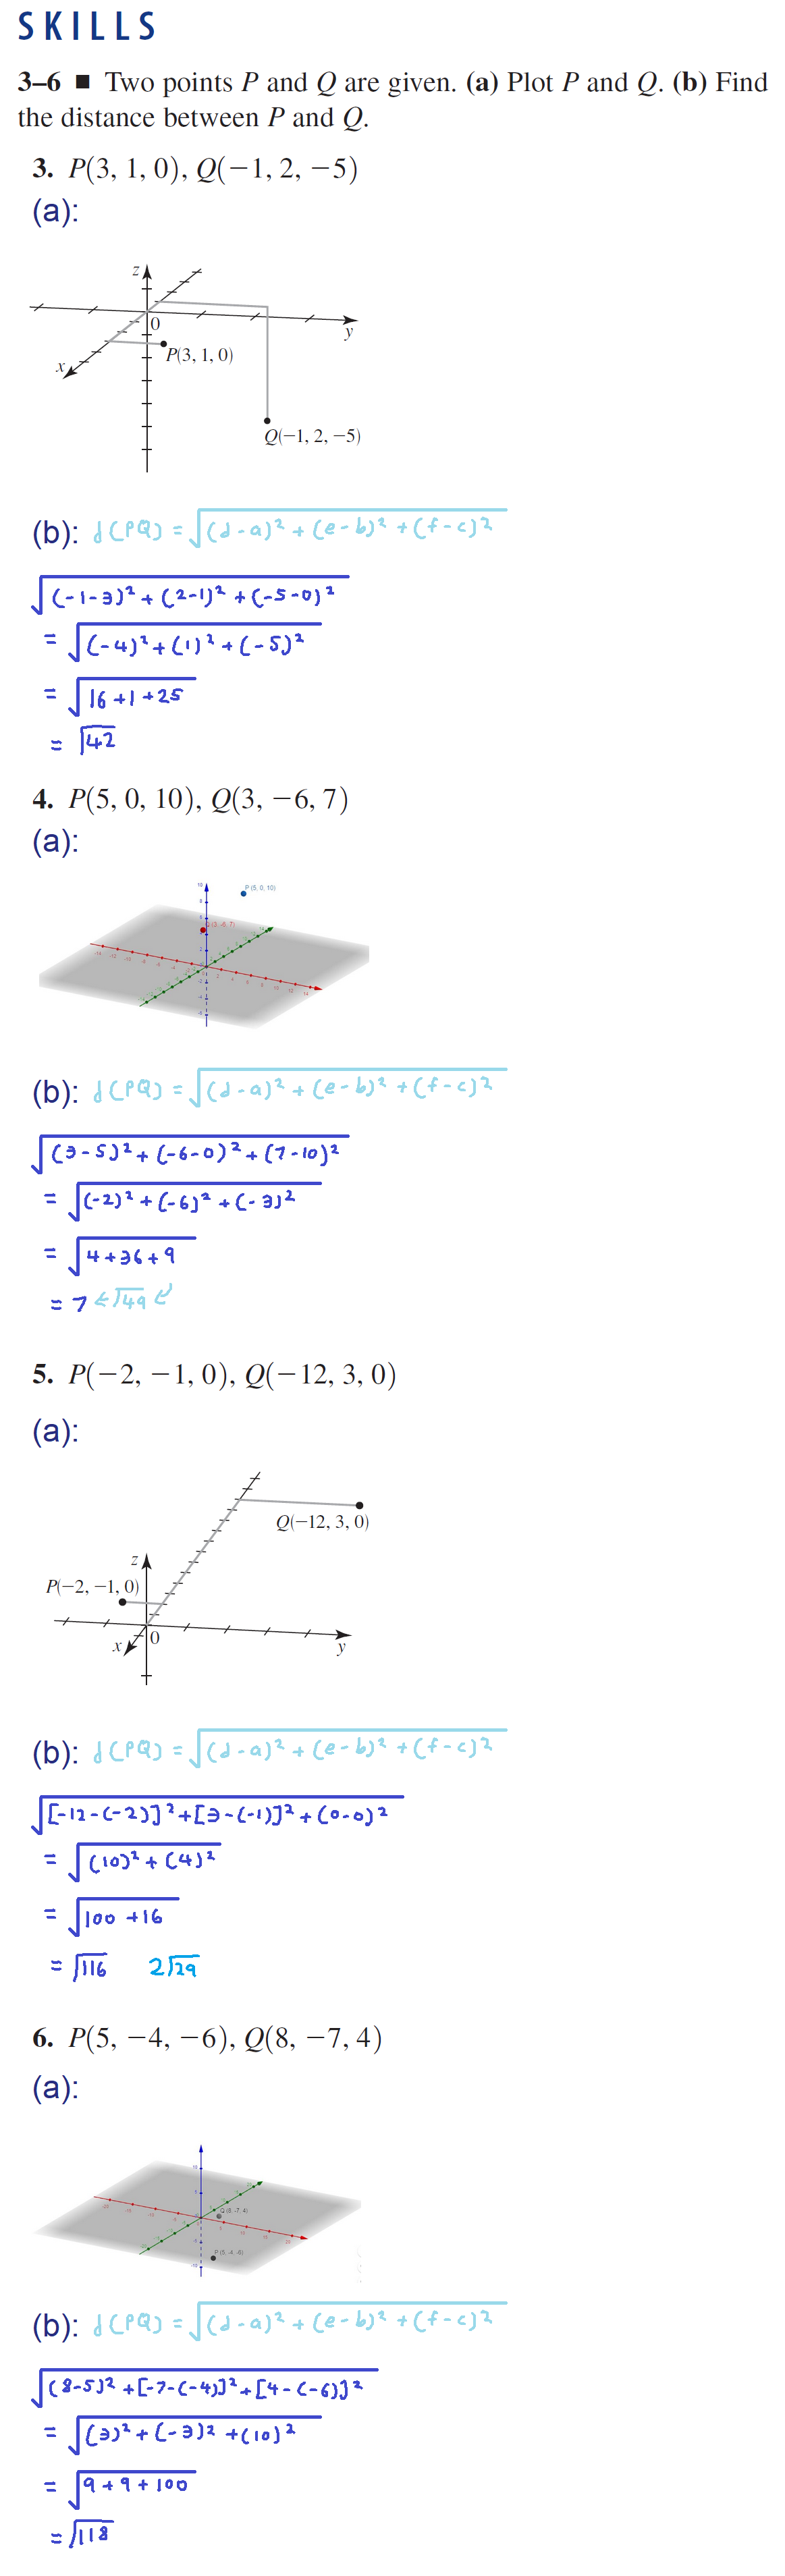 SKILLS
3–6 ■ Two points P and Q are given. (a) Plot P and Q. (b) Find
the distance between P and Q.
3. P(3, 1, 0), Q(−1, 2, −5)
(a):
z
0
y
P(3, 1, 0)
x
Q(−1, 2, −5)
(b): d(PQ) = √((d-a)² + (e-b)² + (f-c)²)
√((-1-3)² + (2-1)² + (-5-0)²)
= √((-4)² + (1)² + (-5)²)
= √(16+1+25)
= √42
4. P(5, 0, 10), Q(3, −6, 7)
(a):
P (5, 0, 10)
(3, -6, 7)
(b): d(PQ) = √((d-a)² + (e-b)² + (f-c)²)
√((3-5)² + (-6-0)² + (7-10)²)
= √((-2)² + (-6)² + (-3)²)
= √(4+36+9)
= 7 ← √49 ↲
5. P(−2, −1, 0), Q(−12, 3, 0)
(a):
Q(−12, 3, 0)
z
P(−2, −1, 0)
0
x
y
(b): d(PQ) = √((d-a)² + (e-b)² + (f-c)²)
√([-12-(-2)]² + [3-(-1)]² + (0-0)²)
= √((10)² + (4)²)
= √(100+16)
= √116 2√29
6. P(5, −4, −6), Q(8, −7, 4)
(a):
Q (8, -7, 4)
P (5, -4, -6)
(b): d(PQ) = √((d-a)² + (e-b)² + (f-c)²)
√((8-5)² + [-7-(-4)]² + [4-(-6)]²)
= √((3)² + (-3)² + (10)²)
= √(9+9+100)
= √118